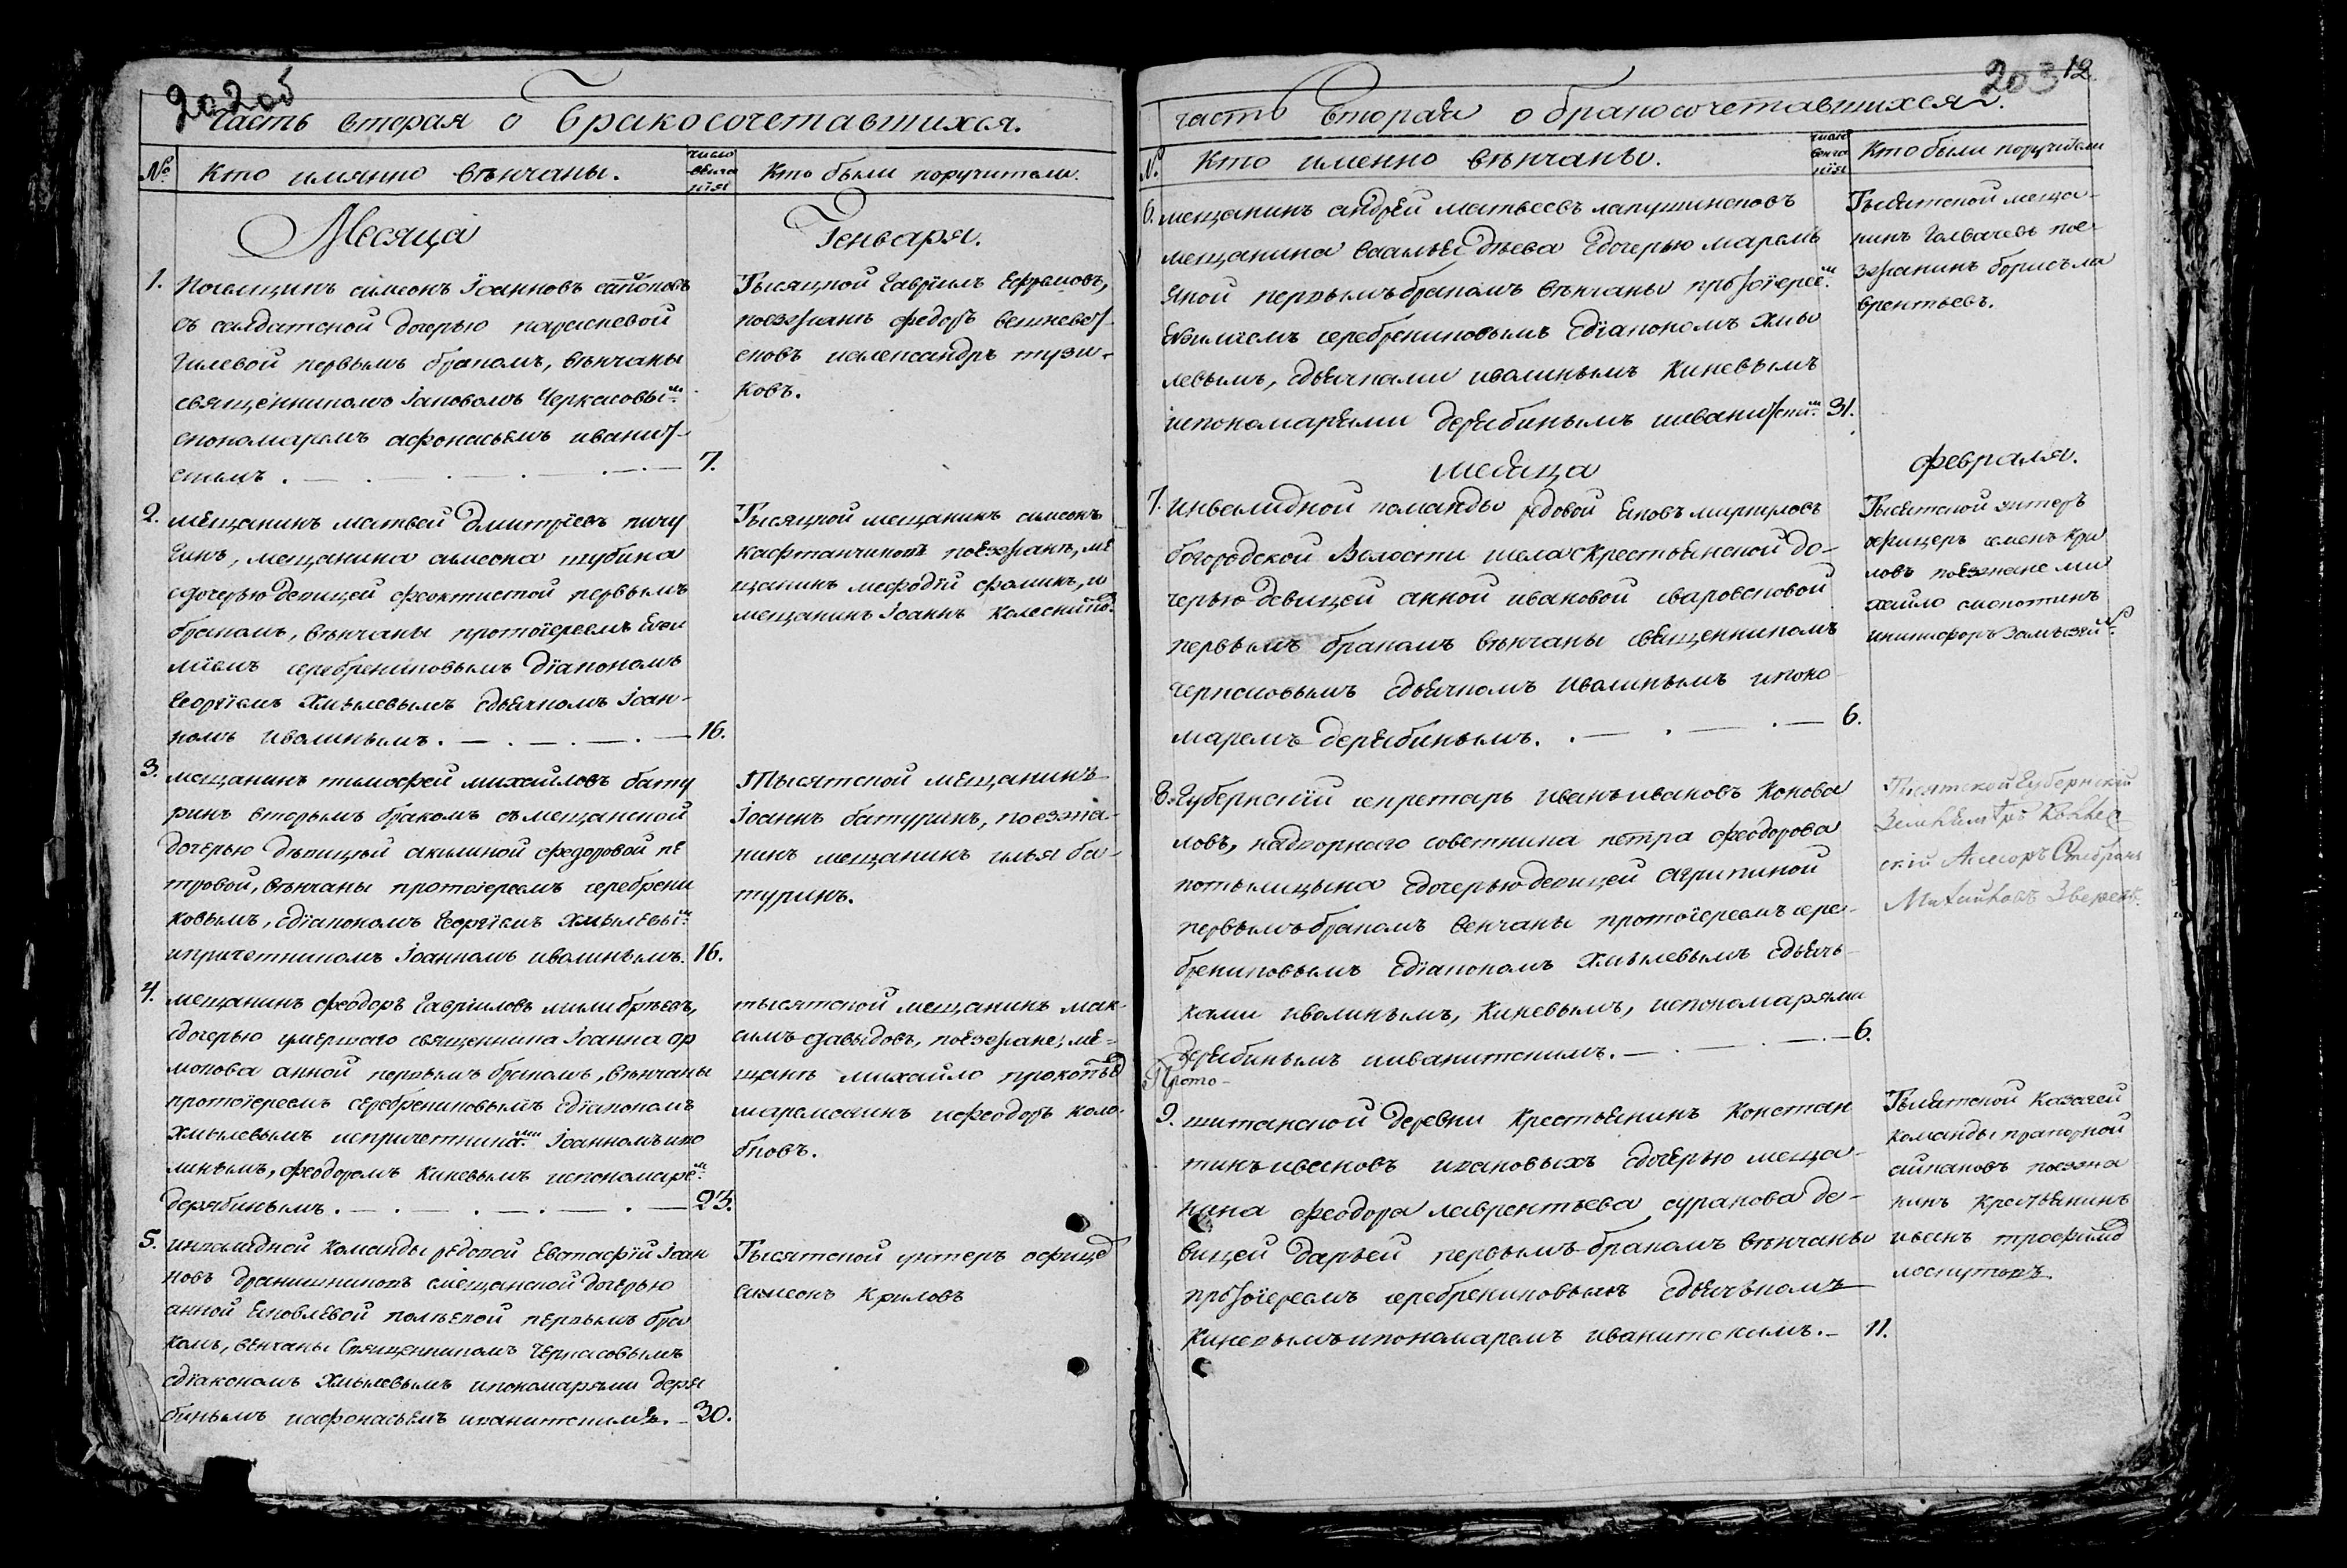 202об
Часть вторая о Бракосочетавшихся.
№ Кто имянно венчаны. число венча нїя Кто были поручители.
Месяца Генваря.
1. Посельщикъ симеонъ Іоанновъ
съ салдатской дочерью параскевой
гилевой первымъ бракомъ, венчаны
священникомъ Іаковомъ Черкасовы м.
спономаремъ афонасьемъ иванит-
скимъ. 7.
Тысяцкой Гаврїилъ Ефремовъ,
поезжанъ федоръ
иалександръ тузи-
ковъ.
2. мещанинъ матвей Дмитрїевъ пичу
гинъ, мещанина симеона шубина
сдочерью девицей феоктистой первымъ
бракомъ, венчаны протоїереемъ Евѳи
мїемъ серебрениковымъ дїакономъ
Георгїемъ Хмылевымъ сдьячкомъ Іоан-
номъ иволинымъ. 16.
Тысяцкой мещанинъ симеонъ
кафтанчиковъ поезжанъ, ме
щанинъ мефодїй фоминъ, и
мещанинъ Іоаннъ колесниковъ
3. мещанинъ тимофей михайловъ бату
ринъ вторымъ бракомъ съмещанской
дочерью девицей акилиной федоровой пе
тровой, венчаны протоїереемъ серебрени
ковымъ, сдїакономъ Георгїемъ хмылевы м.
ипричетникомъ Іоанномъ иволинымъ. 16.
Тысятской мещанинъ
Іоаннъ батуринъ, поезжа-
нинъ мещанинъ илья ба-
туринъ.
4. мещанинъ феодоръ Гаврїиловъ
сдочерью умершаго священника Іоанна ор
мокова анной первымъ бракомъ, венчаны
протоїереемъ серебрениковымъ сдїакономъ
хмылевымъ ипричетника ми. Іоанномъ иво
линымъ, феодоромъ киневымъ испономаре м.
дерябинымъ. 23.
тысятской мещанинъ мак-
симъ давыдовъ, поезжане, ме-
щанъ михайло прокопьев
марамзинъ ифеодоръ коло-
бковъ.
5. инвалидной команды редовой Евстафїй Іоан
новъ дранишниковъ смещанской дочерью
анной Яковлевой первымъ бра
комъ, венчаны Священникомъ черкасовымъ
сдїакономъ Хмылевымъ ипономарями деря
бинымъ иафонасьемъ иванитскимъ. 30.
Тысятской унтеръ офицер
симеонъ Криловъ
203 12
часть Вторая о бракосочетавшихся.
№ Кто именно венчаны. число венча нїя Кто были поручители
6. мещанинъ андрей матвеевъ лапушинсковъ
мещанина сдочерью марем
яной первымъ бракомъ венчаны протоїерее м.
Евѳимїемъ серебрениковымъ сдїакономъ хмы
левымъ, сдьячками иволинымъ киневымъ
испономарями дерябинымъ ииванитски м. 31.
Тысятской меща-
нинъ Толвачевъ пое-
зжанинъ борисъ ла
врентьевъ.
месяца февраля.
7. инвалидной команды редовой Яковъ миркуловъ
богородской Волости села скрестьянской до-
черью девицей анной ивановой
первымъ бракомъ венчаны священникомъ
черкасовымъ сдьячкомъ иволинымъ ипоно
маремъ дерябинымъ. 6.
Тысятской унтеръ
офицеръ семенъ кри
ловъ поезжане ми
хайло
8. Губернскїй секретарь иванъ ивановъ Конова
ловъ, надворнаго советника петра феодорова
потылицына сдочерью девицей агрипиной
первымъ бракомъ венчаны протоїереемъ сере-
брениковымъ сдїакономъ Хмылевымъ сдьяч-
ками иволинымъ, Киневымъ, испономарями
дерябинымъ ииванитскимъ. 6.
Тысятской Губернскїй
Землемеръ Колле
скїй Асесоръ
Михайловъ Зверевъ.
Прото-
9. шитанской деревни Крестьянинъ Констан
тинъ ивановъ ивановыхъ сдочерью меща-
нина феодора лаврентьева суранова де-
вицей дарьей первымъ бракомъ венчаны
протоїереемъ серебрениковымъ сдьячкомъ
киневымъ ипономаремъ иванитскимъ. 11.
Тысятской Казачей
команды
поезжа
нинъ крестьянинъ
иванъ трофимов
лоскутовъ.